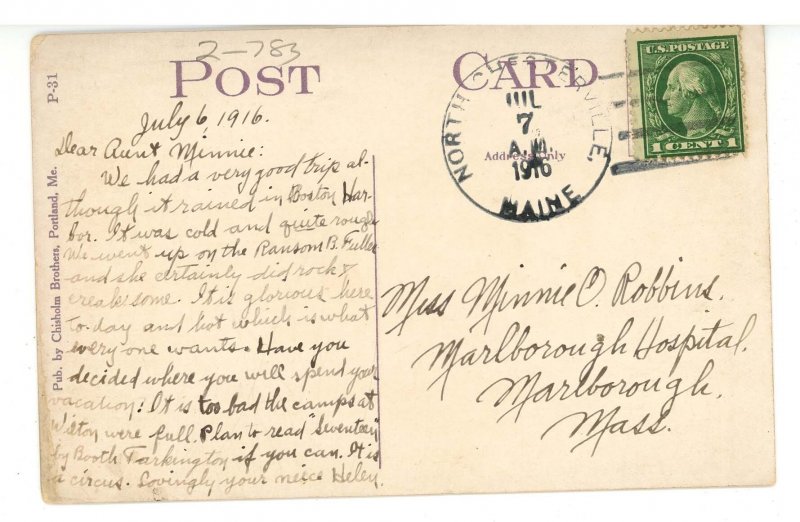 2-783
POST CARD
P-31
Pub. by Chisholm Brothers, Portland, Me.
July 6 1916.
Dear Aunt Minnie:
We had a very good trip al-
though it rained in Boston Har-
bor. It was cold and quite rough
We went up on the Ransom B. Fuller
and she certainly did rock &
creak some. It is glorious here
to-day and hot which is what
every one wants. Have you
decided where you will spend your
vacation? It is too bad the camps at
Wilton were full. Plan to read "Seventeen"
by Booth Tarkington if you can. It is
a circus. Lovingly your neice Helen.
Address Only
NORTH CHESTERVILLE,
JUL
7
A.M.
1916
MAINE
U.S. POSTAGE
1 CENT 1
Miss Minnie O. Robbins.
Marlborough Hospital,
Marlborough,
Mass.